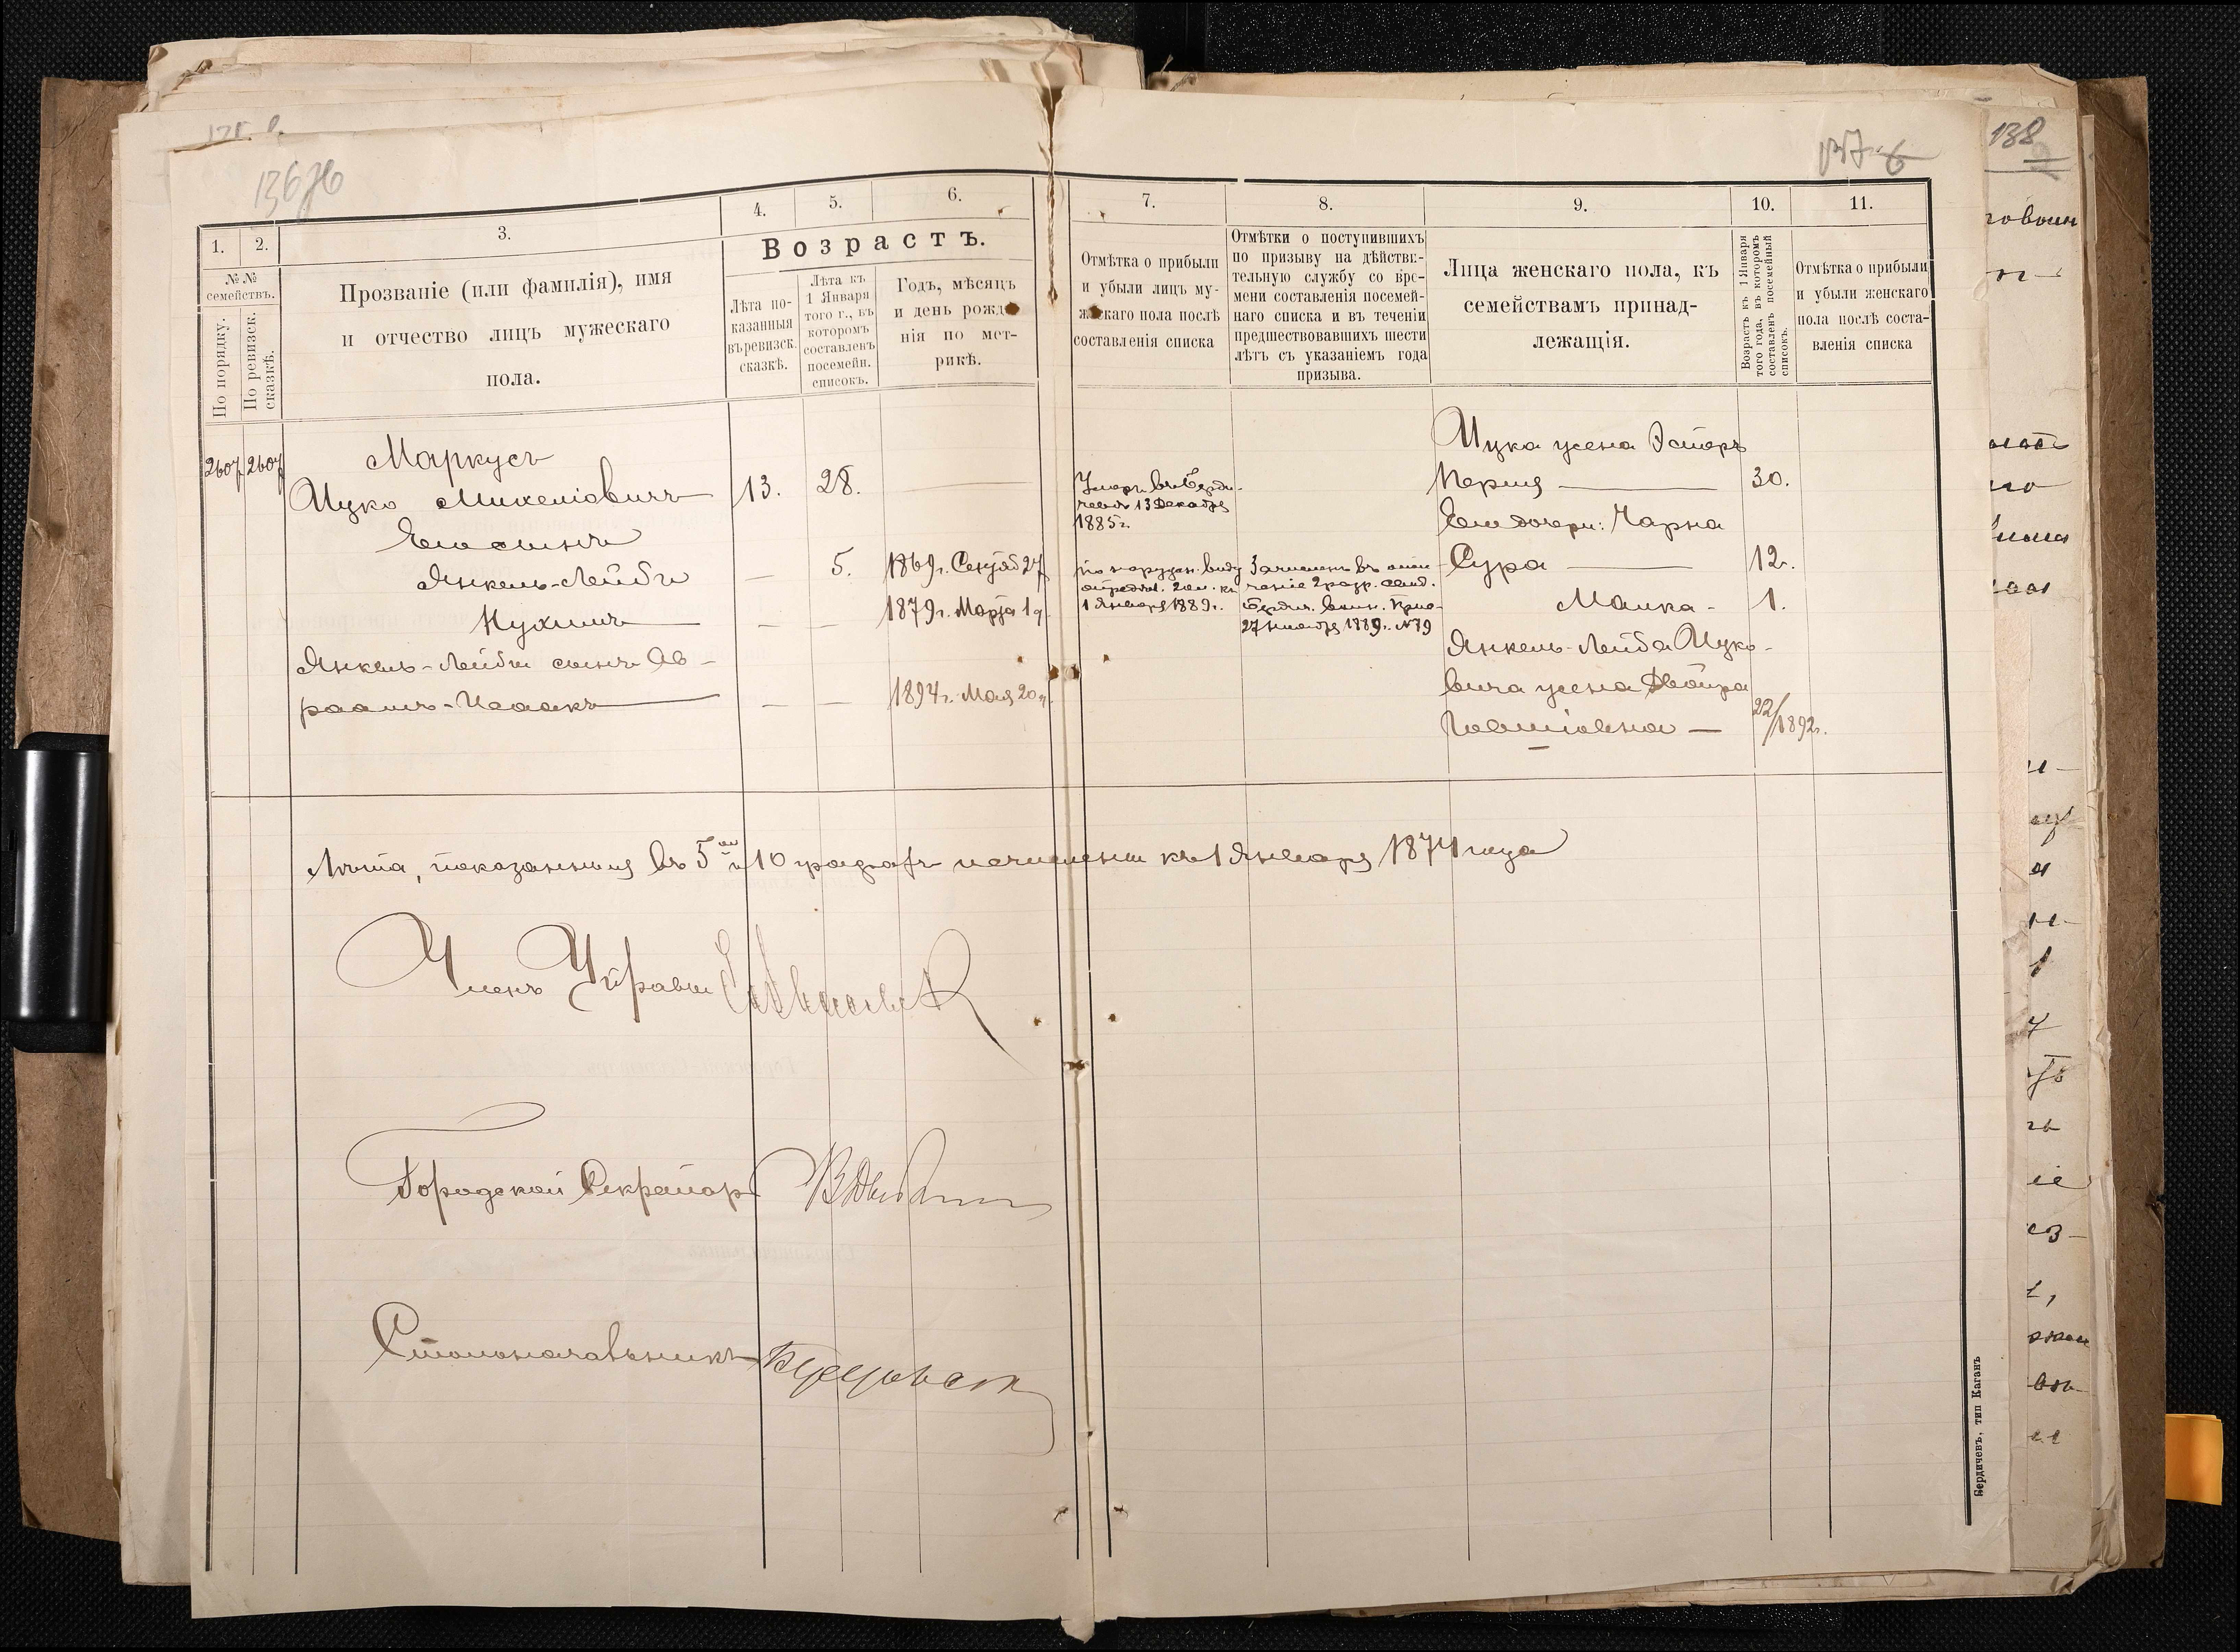 138
1. 2. 3. 4. 5. 6. 7. 8. 9. 10. 11.
№ № семействъ.
По порядку.
По ревизск. сказкѣ.
Прозваніе (или фамилія), имя
и отчество лицъ мужескаго
пола.
Возрастъ.
Лѣта по-
казанныя
въ ревизск.
сказкѣ.
Лѣта къ
1 Января
того г., въ
которомъ
составленъ
посемейн.
списокъ.
Годъ, мѣсяцъ
и день рожде
нія по мет-
рикѣ.
Отмѣтка о прибыли
и убыли лицъ му-
жескаго пола послѣ
составленія списка
Отмѣтки о поступившихъ
по призыву на дѣйстви-
тельную службу со вре-
мени составленія посемей-
наго списка и въ теченіи
предшествовавшихъ шести
лѣтъ съ указаніемъ года
призыва.
Лица женскаго пола, къ
семействамъ принад-
лежащія.
Возрастъ къ 1 Января
того года, въ которомъ
составленъ посемейный
списокъ.
Отмѣтка о прибыли
и убыли женскаго
пола послѣ соста-
вленія списка
2607 2607
Маркусъ
Ицко 13. 28.
Его сынъ
Янкель-Лейбъ — 5. 1869 г. 27
Нухимъ — — 1879 г. Марта 19
Янкель-Лейбы сынъ Ав-
раамъ-Исаакъ — — 1894 г. Мая 20 д.
Умеръ въ Берди-
чевѣ 13 Декабря
1885 г.
по наружн. виду
опредѣл. 20 л. къ
1 Января 1889 г.
Зачисленъ въ опол
ченіе 2 разр. свид.
Бердич. воин. Прис.
27 Ноября 1889 г. № 79
Ицка жена Эстеръ
Перля — 30.
Его дочери: Чарна
Сура — 12.
Малка - 1.
Янкель-Лейба Ицко-
вича жена Двойра
— 22/1892 г.
Лѣта, показанныя въ 5 и 10 графѣ исчислены къ 1 Января 1874 года
Членъ Управы
Городской Секретарь
Столоначальникъ
Бердичевъ, тип Каганъ